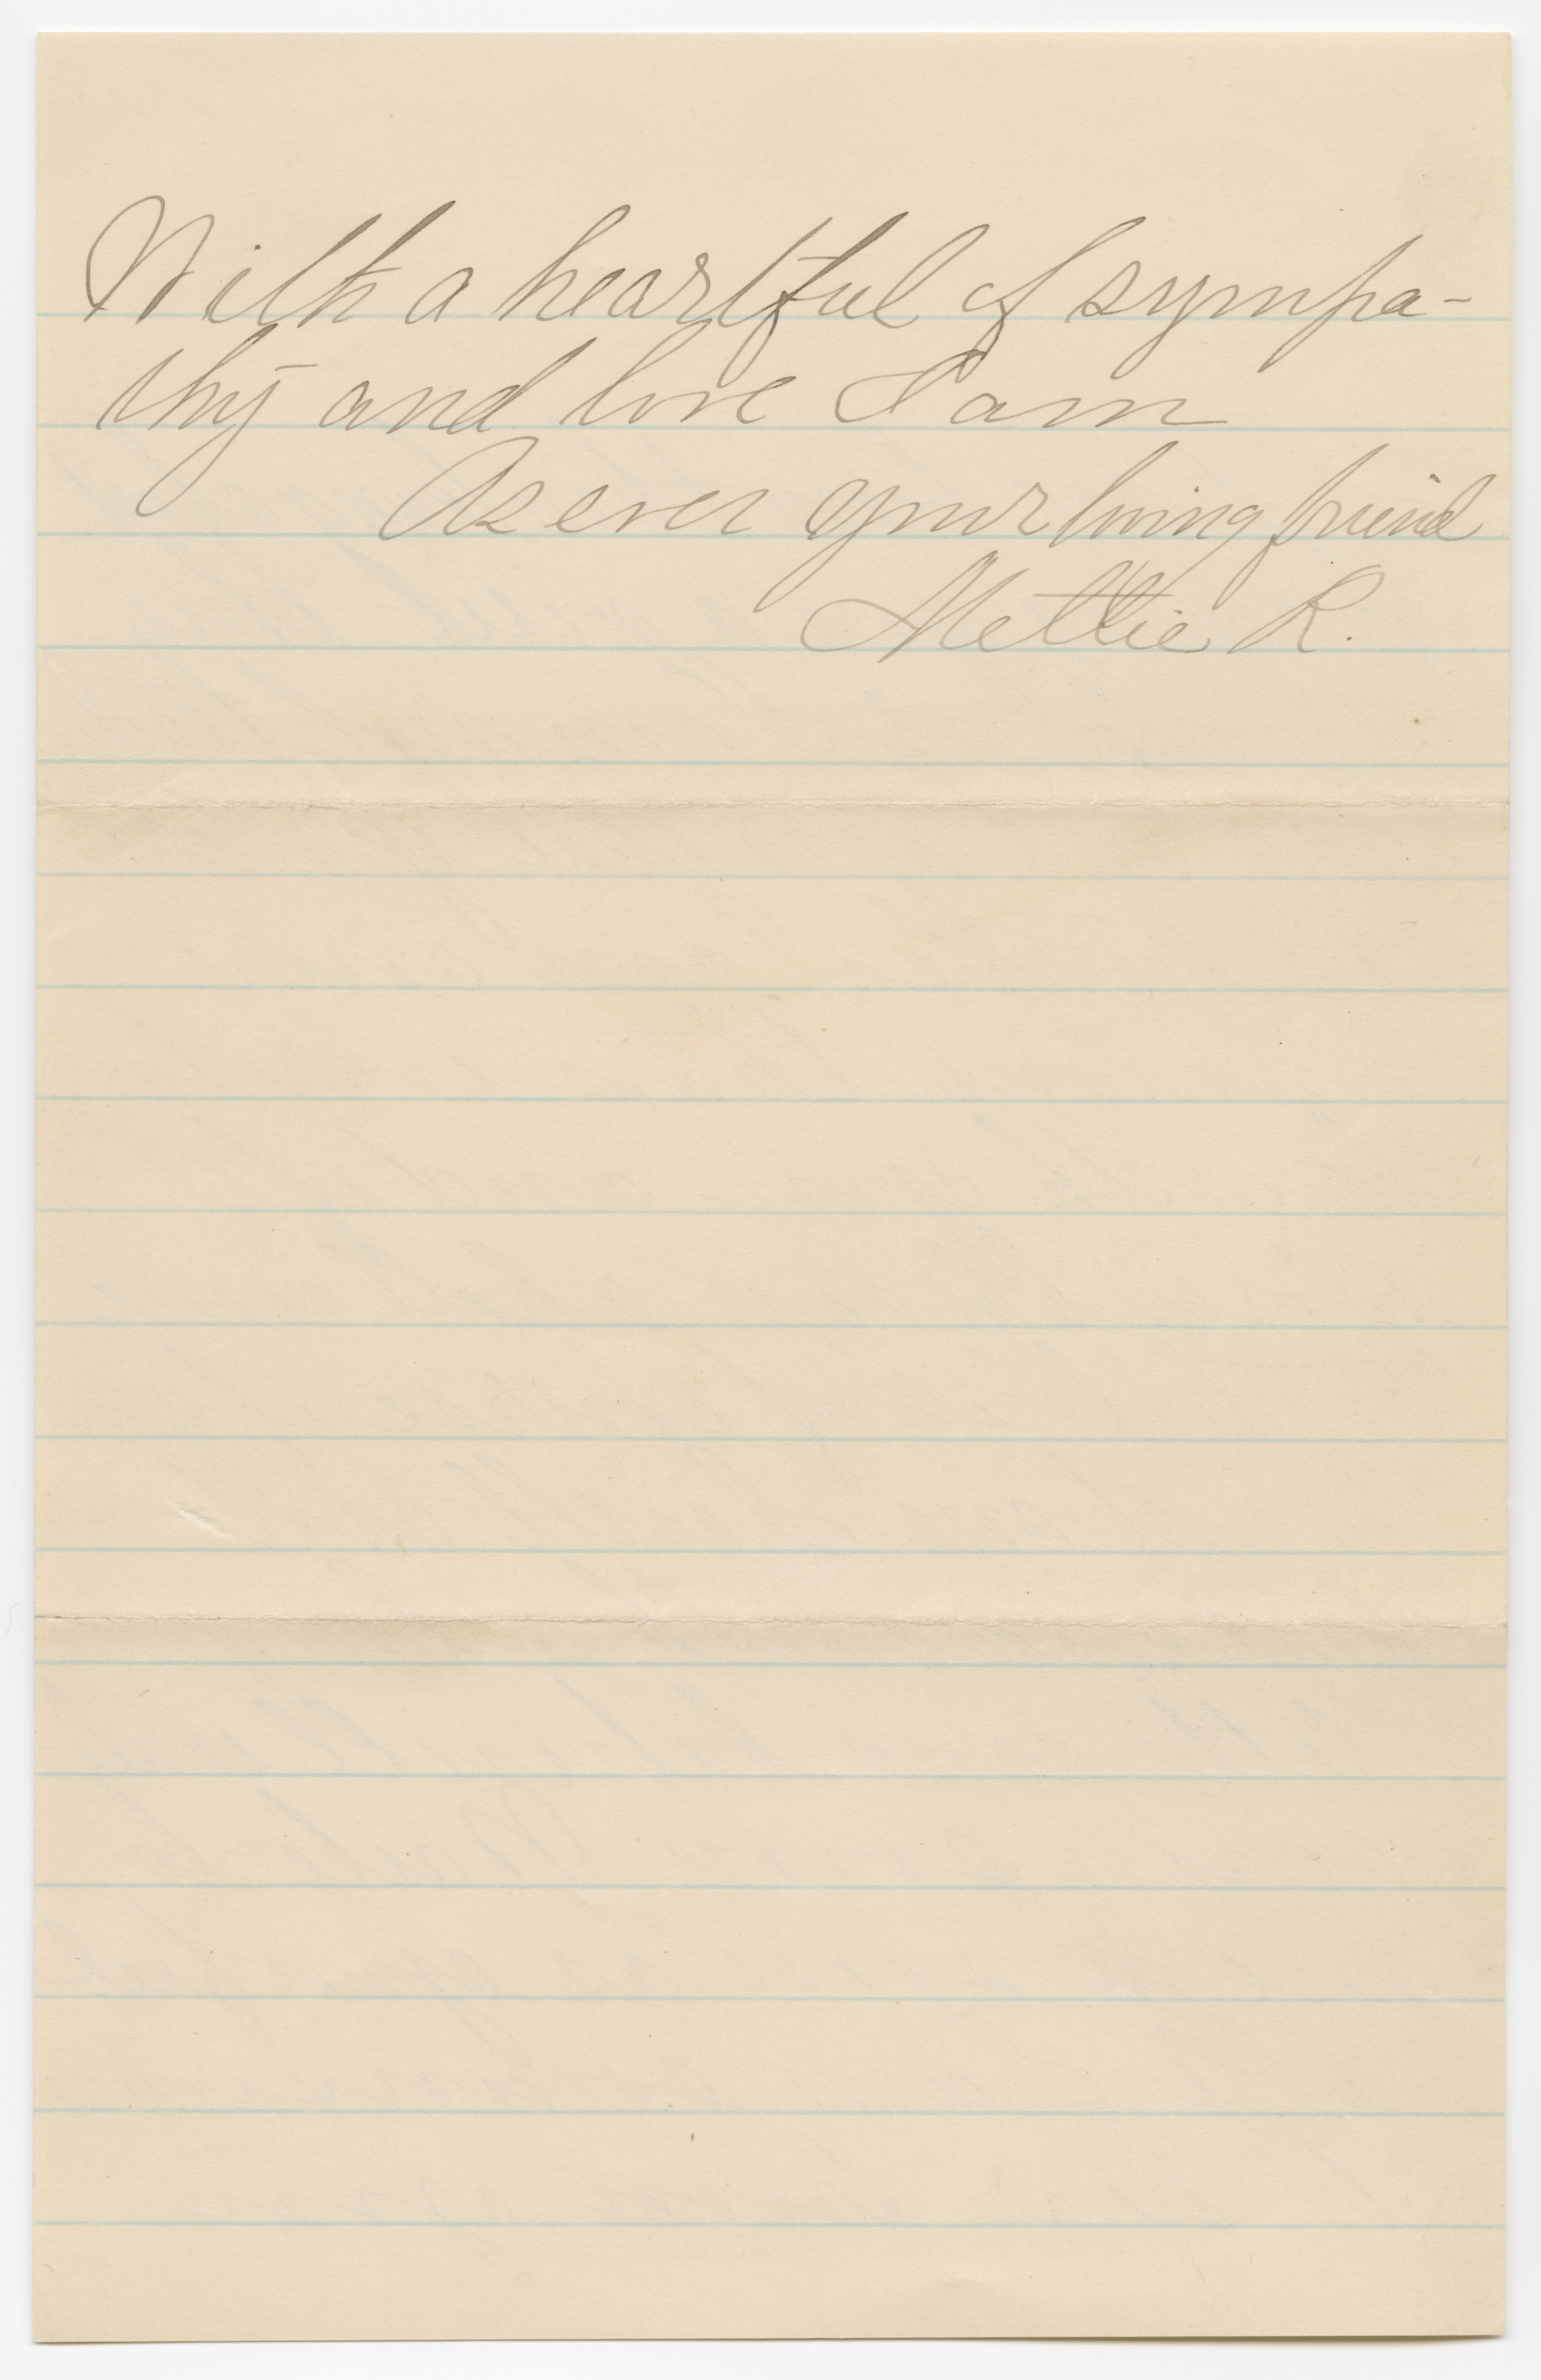 With a heartful of sympa-
thy and love I am
As ever your loving friend
Mettie R.